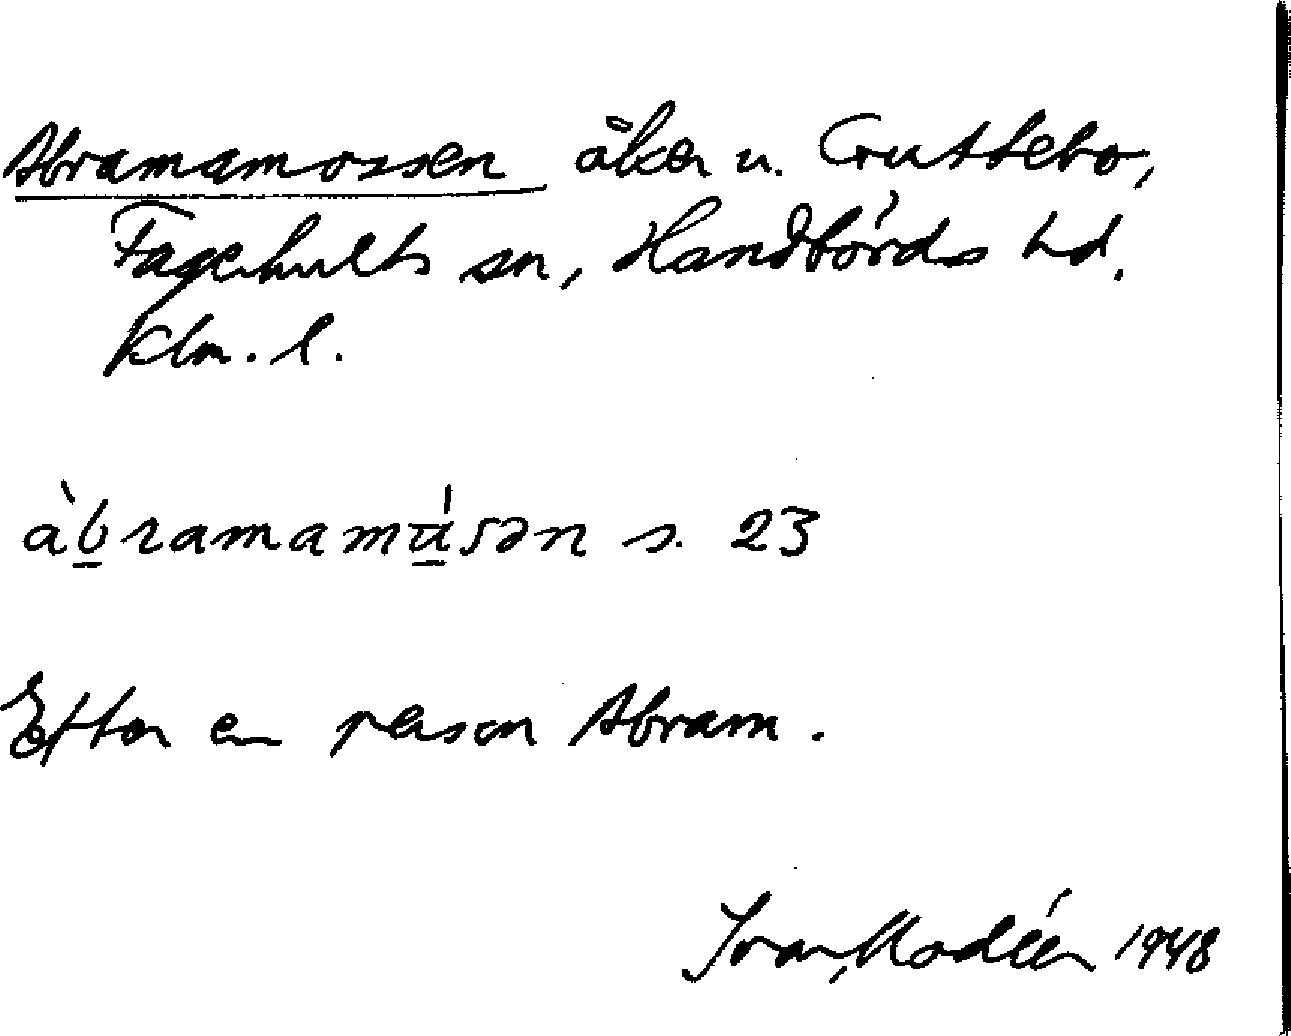 Abramamossen åker u. Gruttebo,
Fagerhults sn, Handbörds hd.
Klm. l.
àbramamúsən s. 23
Efter en person Abram.
Ivar Modéer 1948